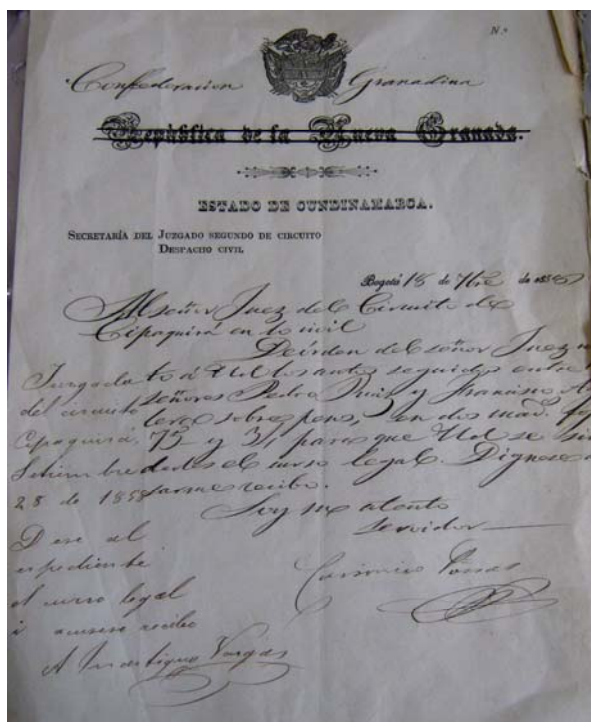 N.º
Confederacion Granadina
República de la Nueva Granada.
ESTADO DE CUNDINAMARCA.
SECRETARÍA DEL JUZGADO SEGUNDO DE CIRCUITO
DESPACHO CIVIL
Bogotá 18 de 7bre de
Al señor Juez del Circuito de
Cipaquirá en lo civil
De órden del señor Juez
to a Ud los autos seguidos entre
señores Pedro Ruiz y Francisco
sobre pesos, en dos
75 y 31, para que Ud se
darles el curso legal. Dignese
sarme recibo.
Soy su atento
servidor
Juzgado
del circuito
Cipaquirá
Setiembre
28 de 1858
Dese al
espediente
el curso legal
i acusese recibo
Vargas